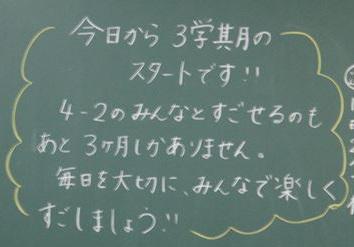 今日から 3学期月の
スタートです!!
4-2のみんなとすごせるのも
あと 3ヶ月しかありません。
毎日を大切に、みんなで楽しく
すごしましょう!!